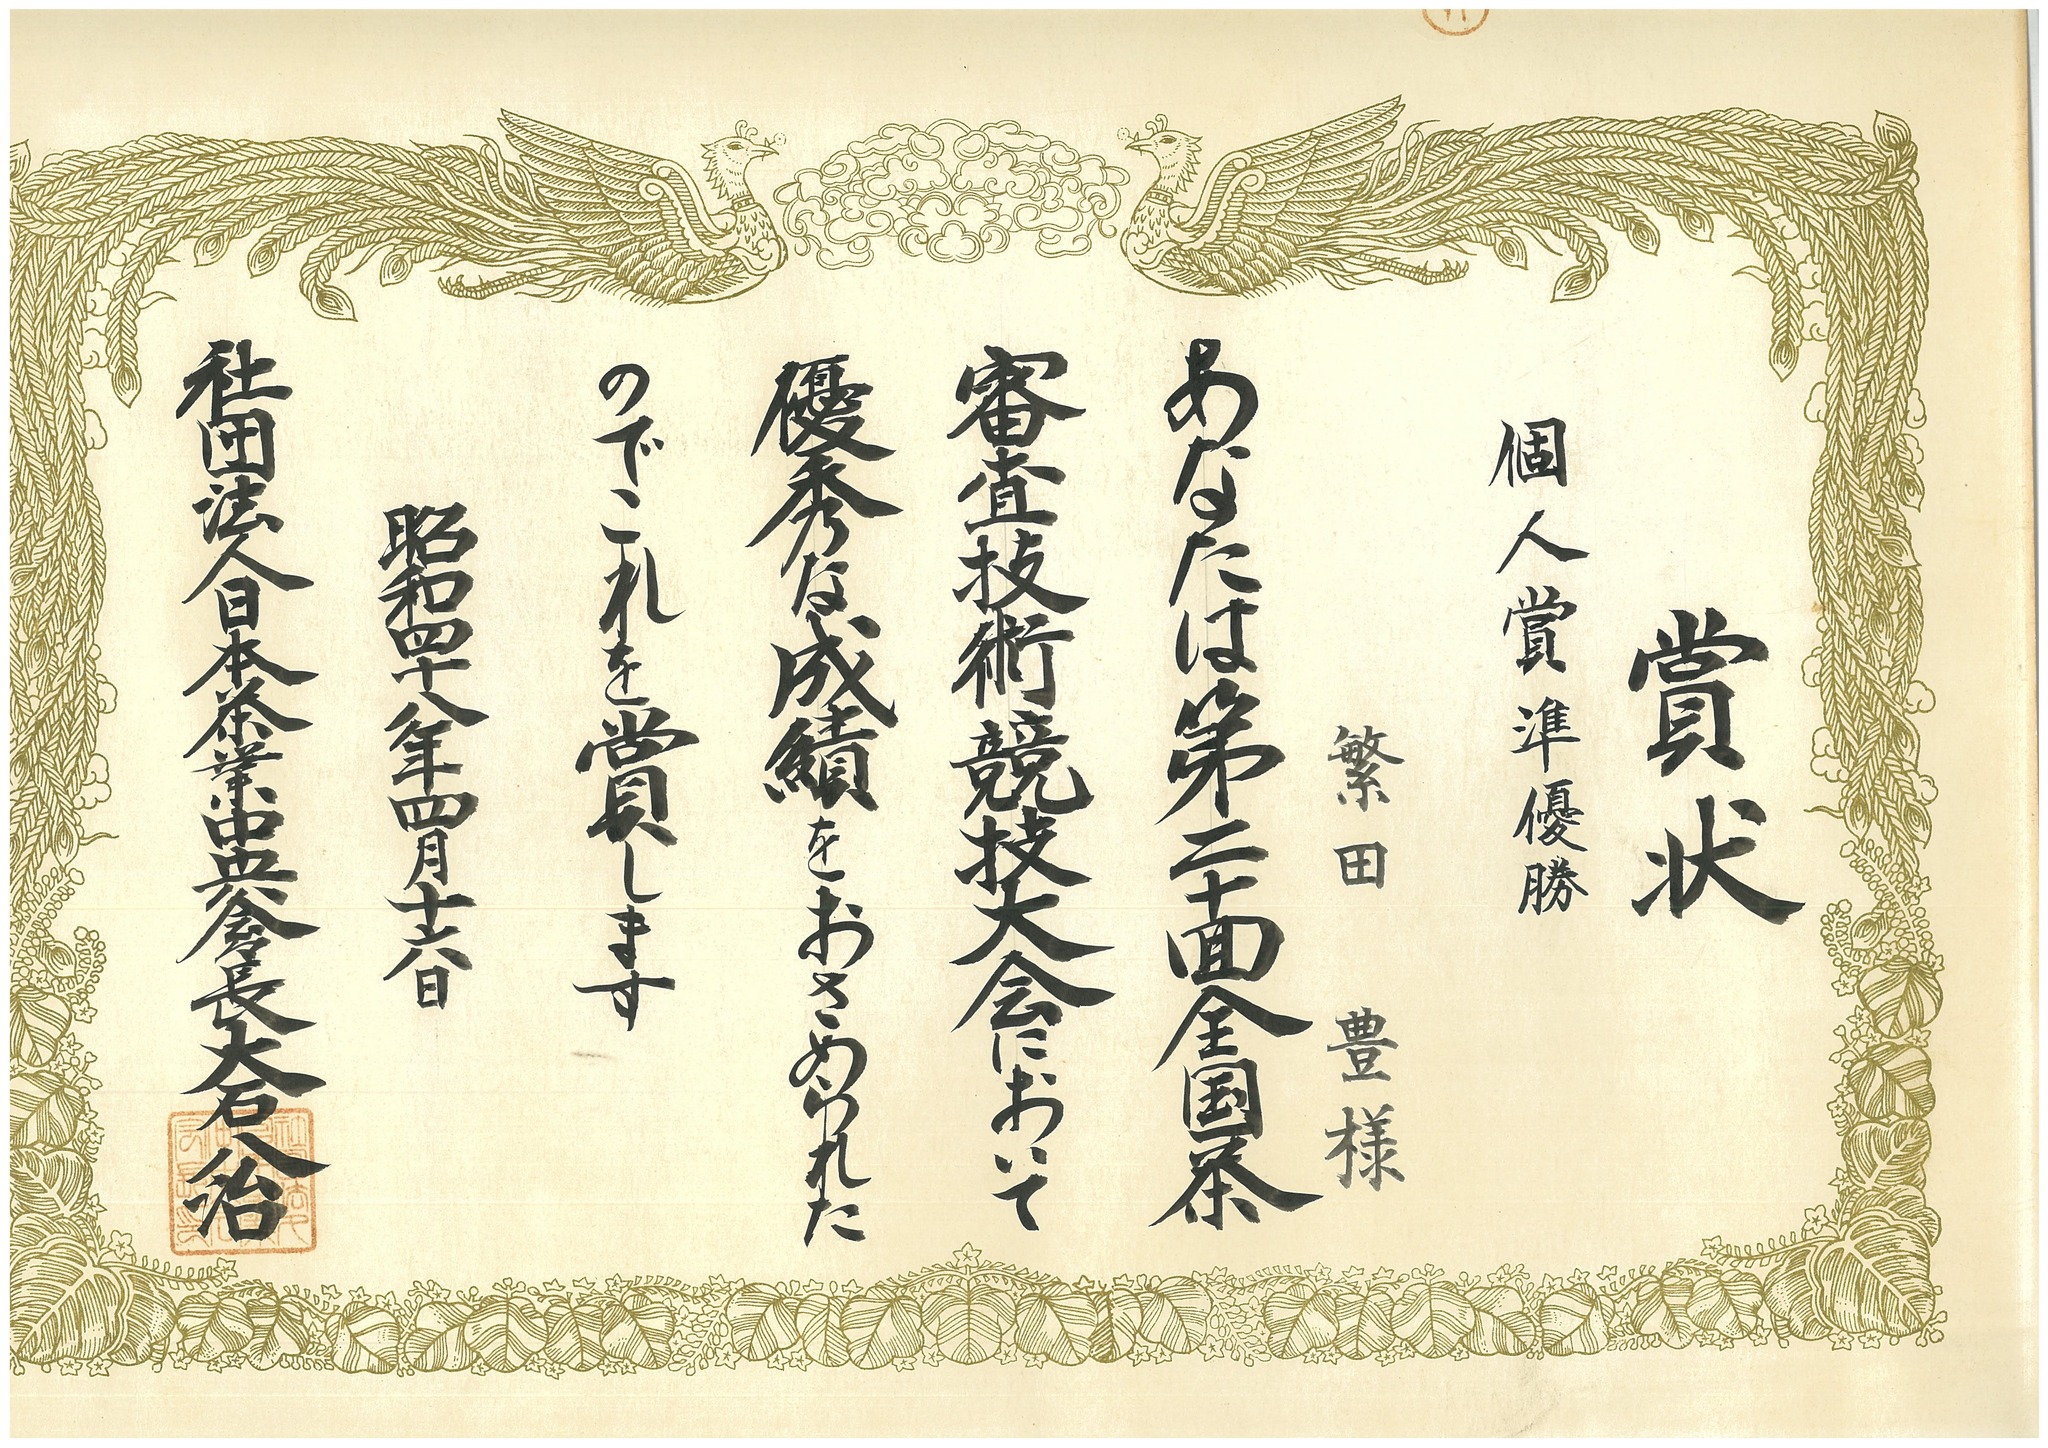 賞状
個人賞準優勝
繁田 豊様
あなたは第二十回全国茶
審査技術競技大会において
優秀な成績をおさめられた
のでこれを賞します
昭和四十八年四月十六日
社団法人日本茶業中央会会長大石八治